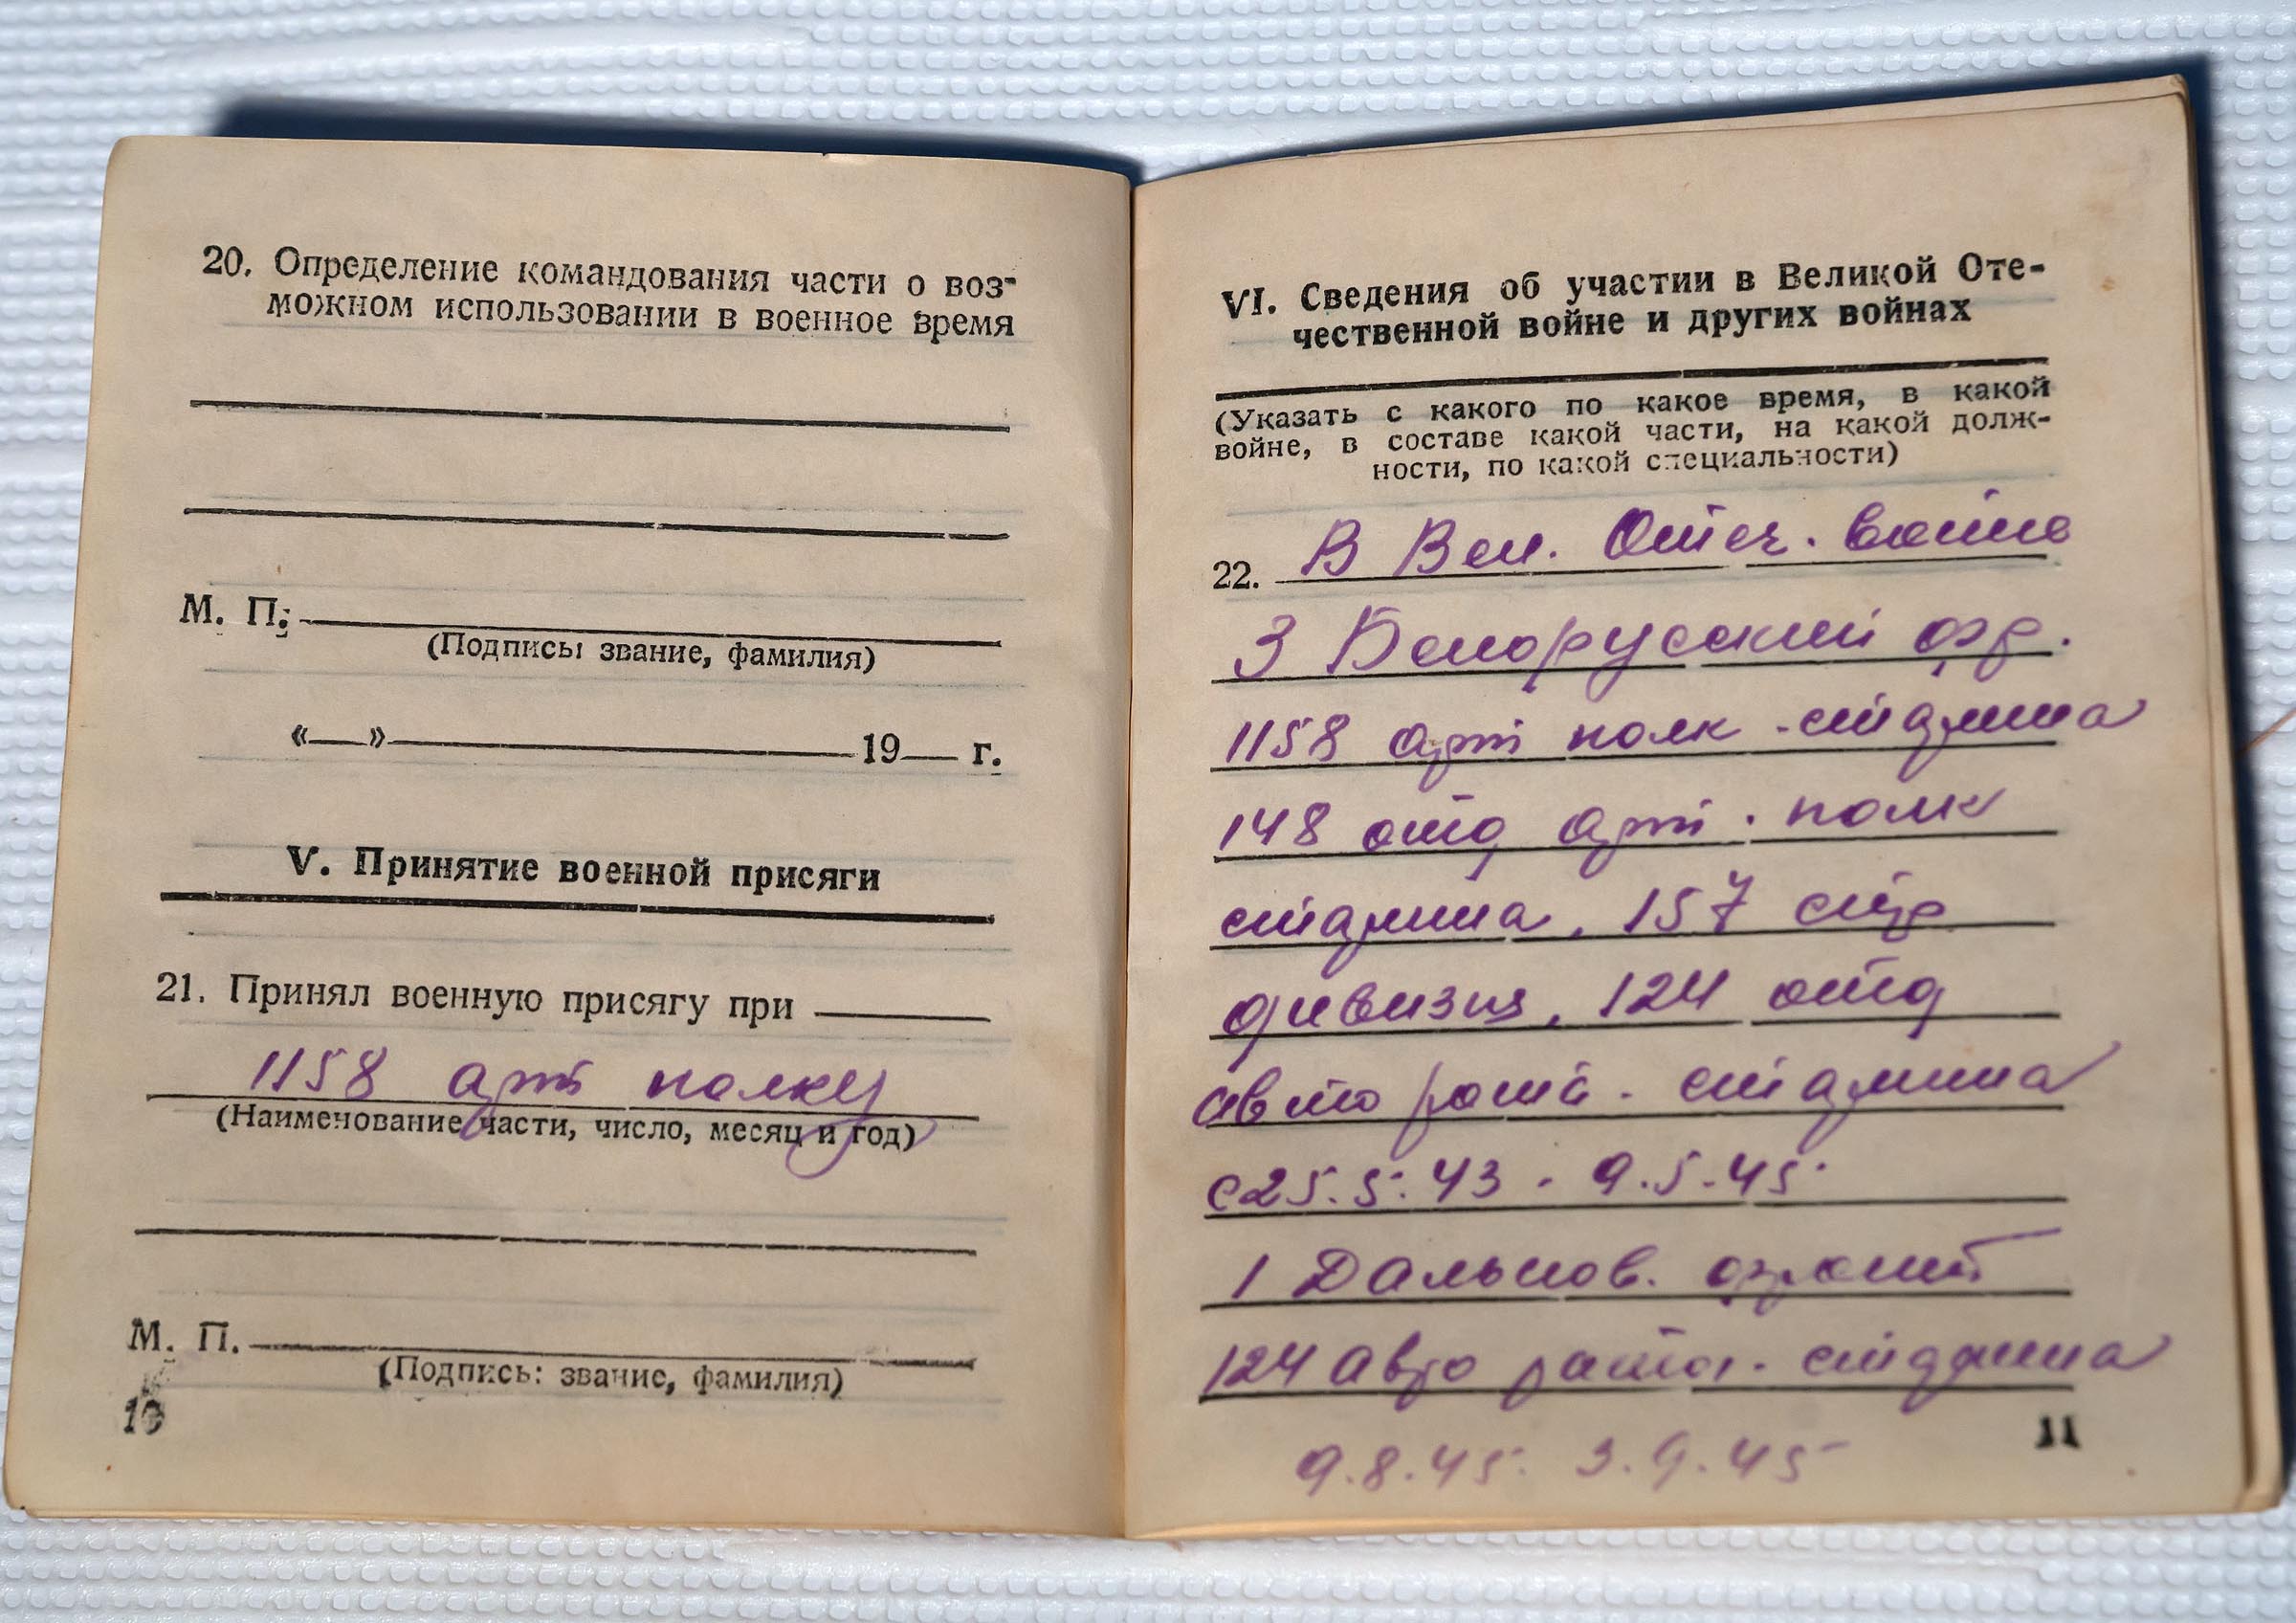 20. Определение командования части о воз-
можном использовании в военное время
М. П.
(Подпись: звание, фамилия)
«__» 19__ г.
V. Принятие военной присяги
21. Принял военную присягу при
1158 арт полку
(Наименование части, число, месяц и год)
М. П.
(Подпись: звание, фамилия)
10
VI. Сведения об участии в Великой Оте-
чественной войне и других войнах
(Указать с какого по какое время, в какой
войне, в составе какой части, на какой долж-
ности, по какой специальности)
22. В Вел. Отеч. войне
3 Белорусский фр.
1158 арт полк - старшина
148 отд арт. полк
старшина, 157 стр
дивизия, 124 отд
авто рота - старшина
с 25.5.43 - 9.5.45
1 Дальнов. фронт
124 авто рота - старшина
9.8.45. 3.9.45
11